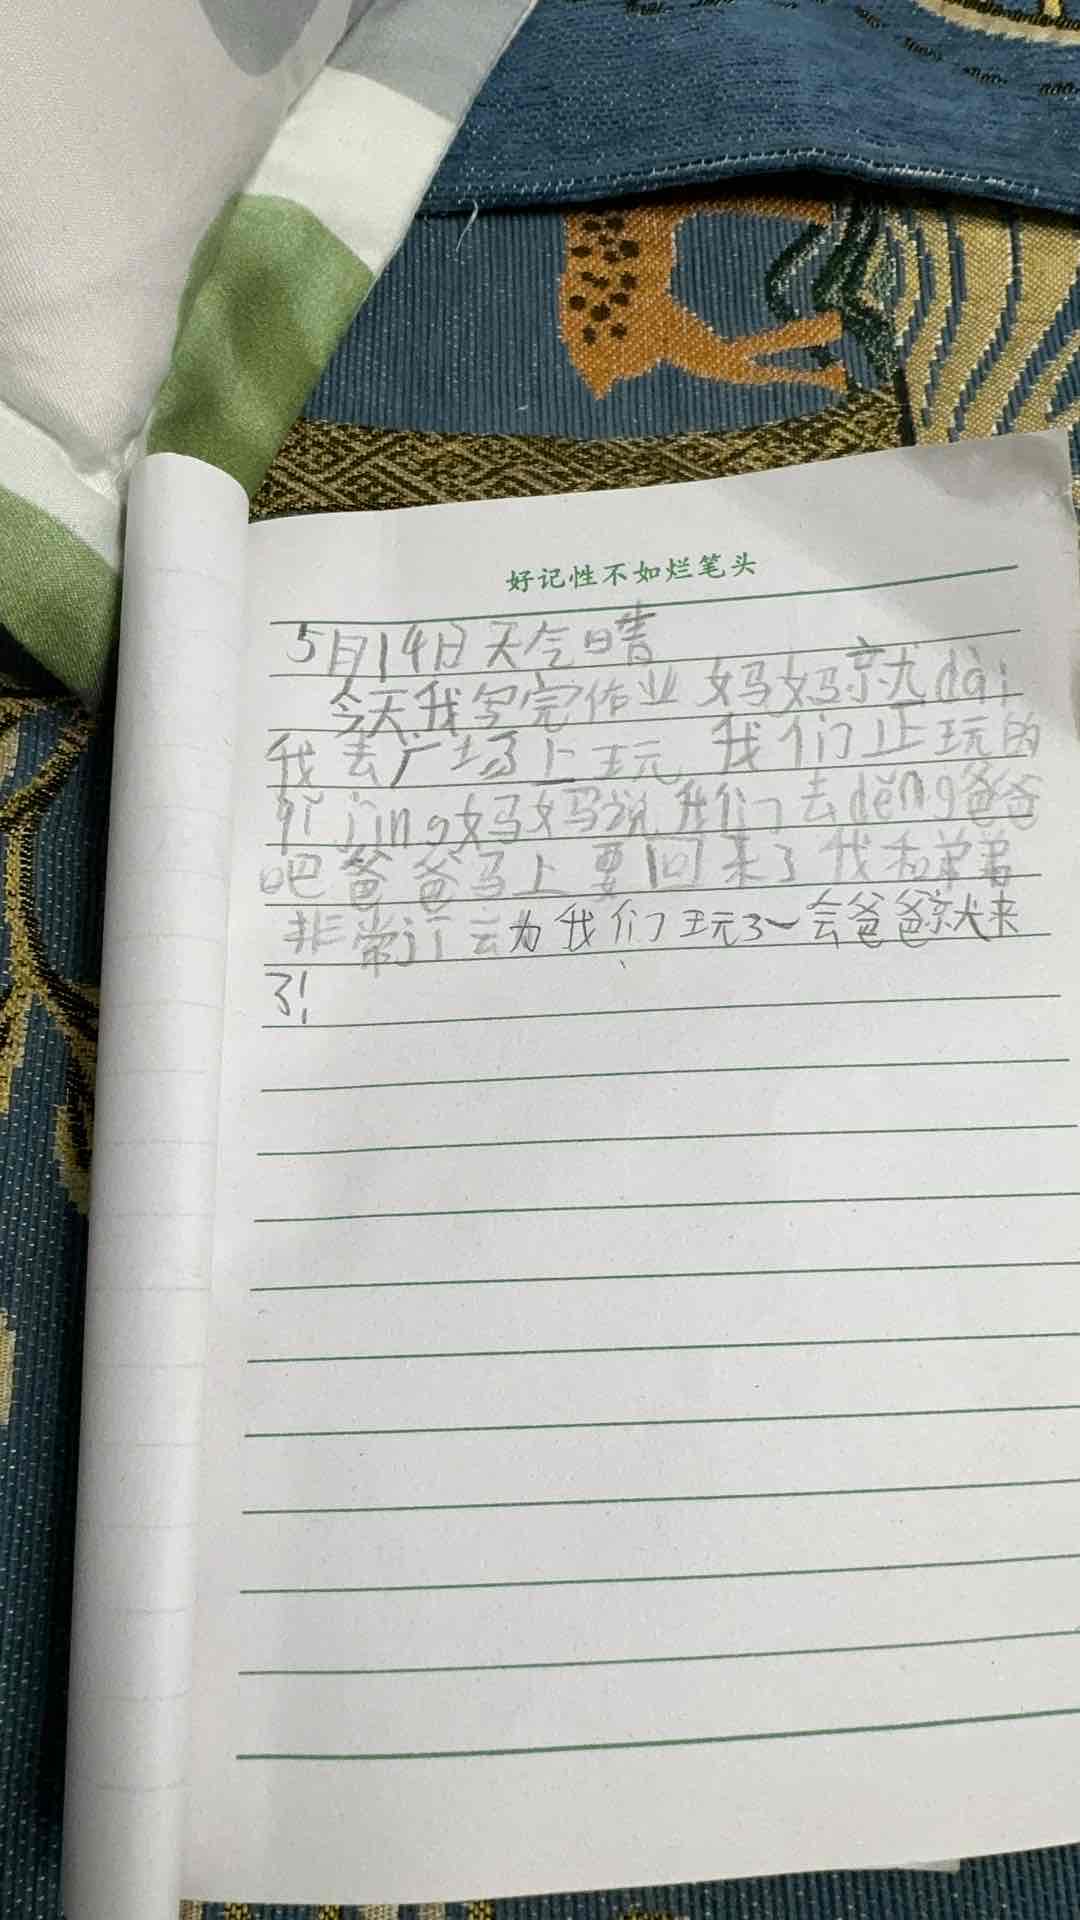 好记性不如烂笔头
5月14日天气晴
今天我写完作业妈妈就dài
我去广场上玩我们正玩的
qǐ jìng妈妈说我们去děng爸爸
吧爸爸马上要回来了我和弟弟
非常行云为我们玩了一会爸爸就来
了!